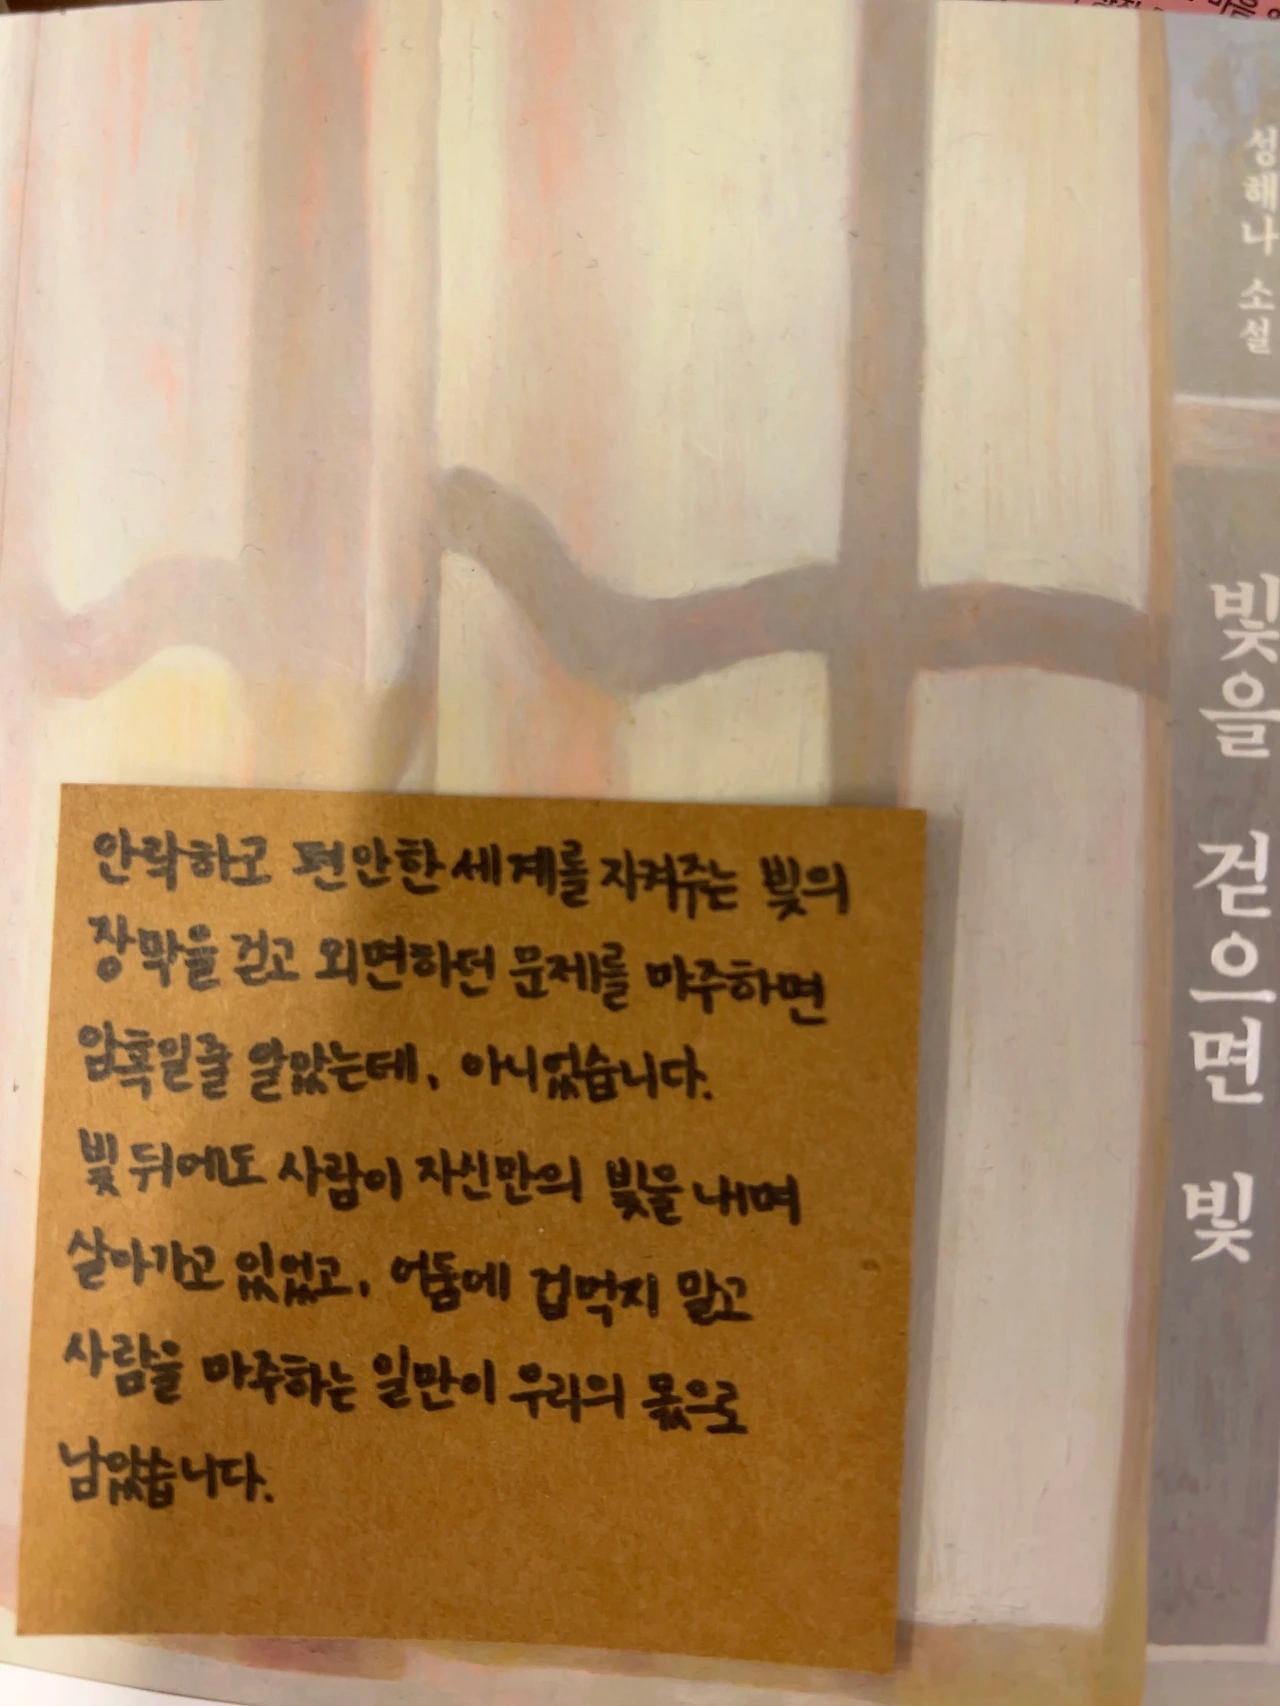 성해나 소설
빛을 걷으면 빛
안락하고 편안한 세계를 지켜주는 빛의
장막을 걷고 외면하던 문제를 마주하면
암흑일줄 알았는데, 아니었습니다.
빛 뒤에도 사람이 자신만의 빛을 내며
살아가고 있었고, 어둠에 겁먹지 말고
사람을 마주하는 일만이 우리의 몫으로
남았습니다.